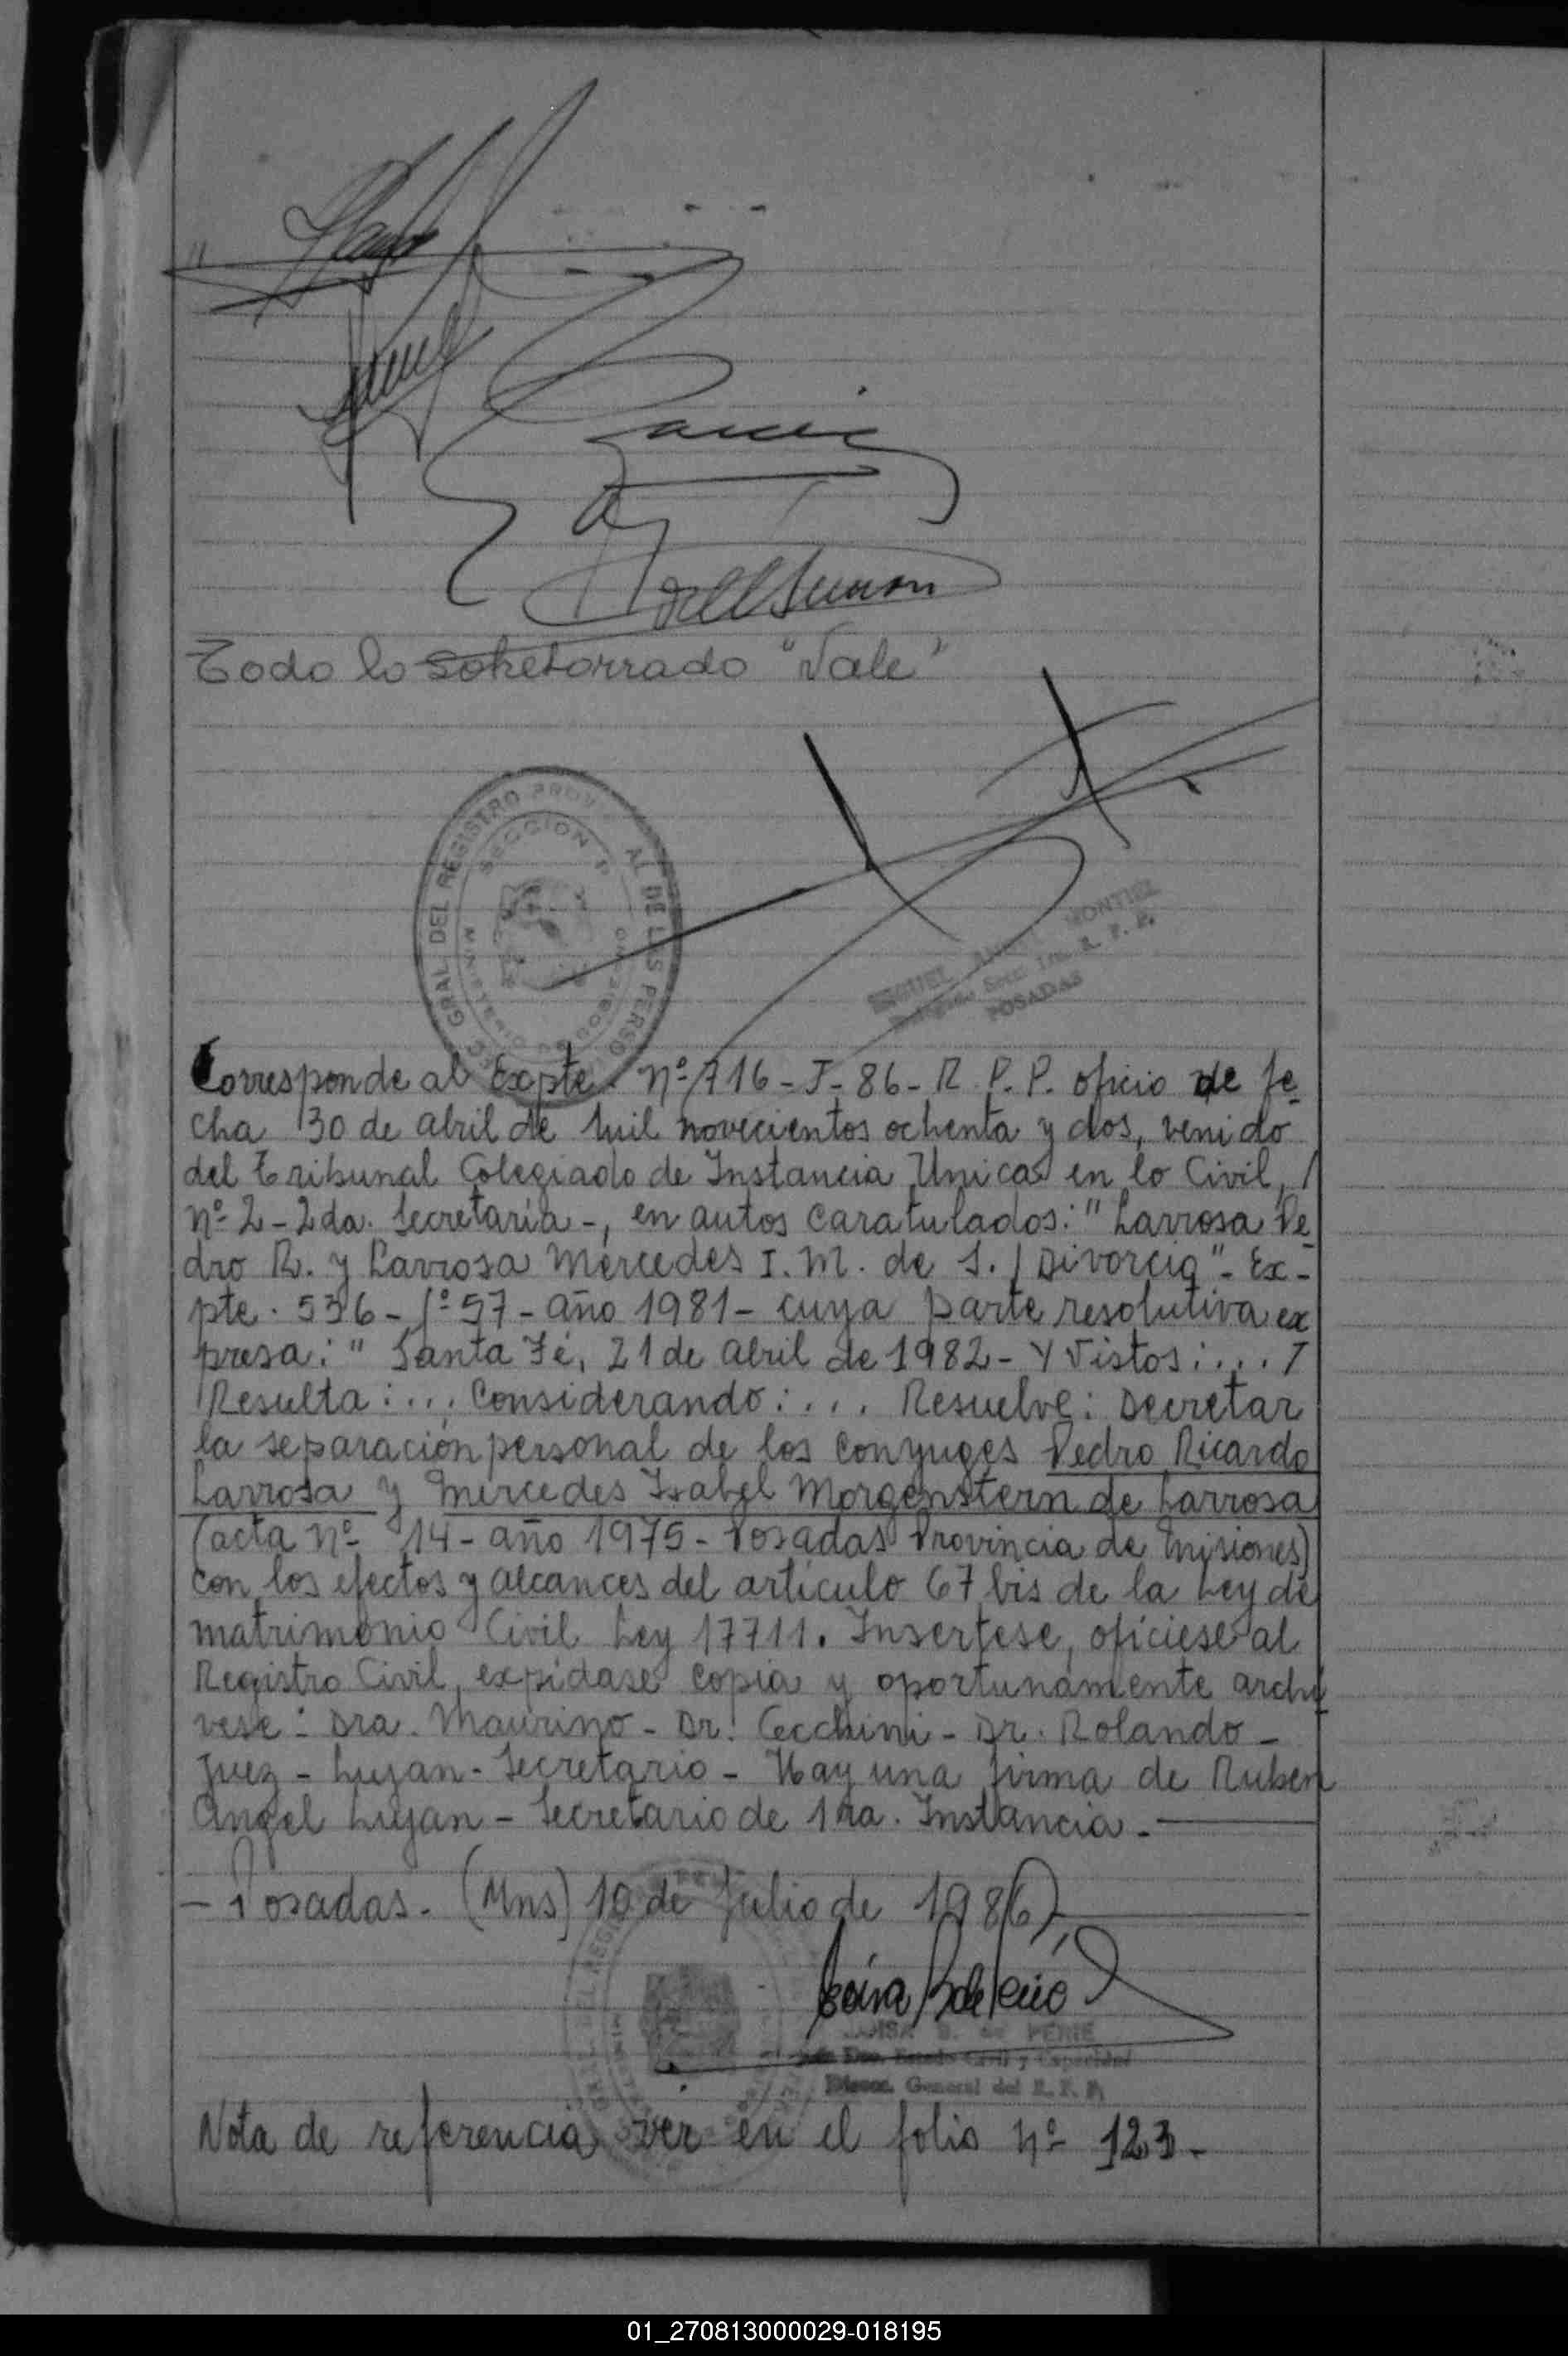 Garcia
Todo lo sobreborrado "Vale"
GRAL DEL REGISTRO PROV AL DE LAS PERSO
SECCION 1ª
MIGUEL ANGEL MONTIEL
Secc. 1ra. R. P. P.
POSADAS
Corresponde al Expte. nº 716-J-86-R.P.P. oficio de fe-
cha 30 de abril de mil novecientos ochenta y dos, venido
del Tribunal Colegiado de Instancia Unica en lo Civil, /
nº 2-2da. Secretaría-, en autos caratulados: "Larrosa Pe-
dro R. y Larrosa Mercedes I. M. de S. / Divorcio"- Ex-
pte. 536-fº 57-año 1981- cuya parte resolutiva ex
presa: " Santa Fé, 21 de abril de 1982- Y Vistos: ... /
Resulta: ... Considerando: ... Resuelve: Decretar
la separación personal de los conyuges Pedro Ricardo
Larrosa y Mercedes Isabel Morgenstern de Larrosa
(acta nº 14- año 1975- Posadas Provincia de Misiones)
con los efectos y alcances del artículo 67 bis de la Ley de
matrimonio Civil Ley 17711. Insertese, ofíciese al
Registro Civil, expídase copia y oportunamente archí
vese: Dra. Maurino- Dr. Cecchini- Dr. Rolando-
Juez- Lujan- Secretario- Hay una firma de Ruben
Angel Lujan- Secretario de 1ra. Instancia.-
- Posadas. (Mns) 10 de Julio de 1986)
LUISA B. de PERIE
Dec. Estado Civil y Capacidad
Direcc. General del R. P. P.
Nota de referencia ver en el folio nº 123-
01_270813000029-018195